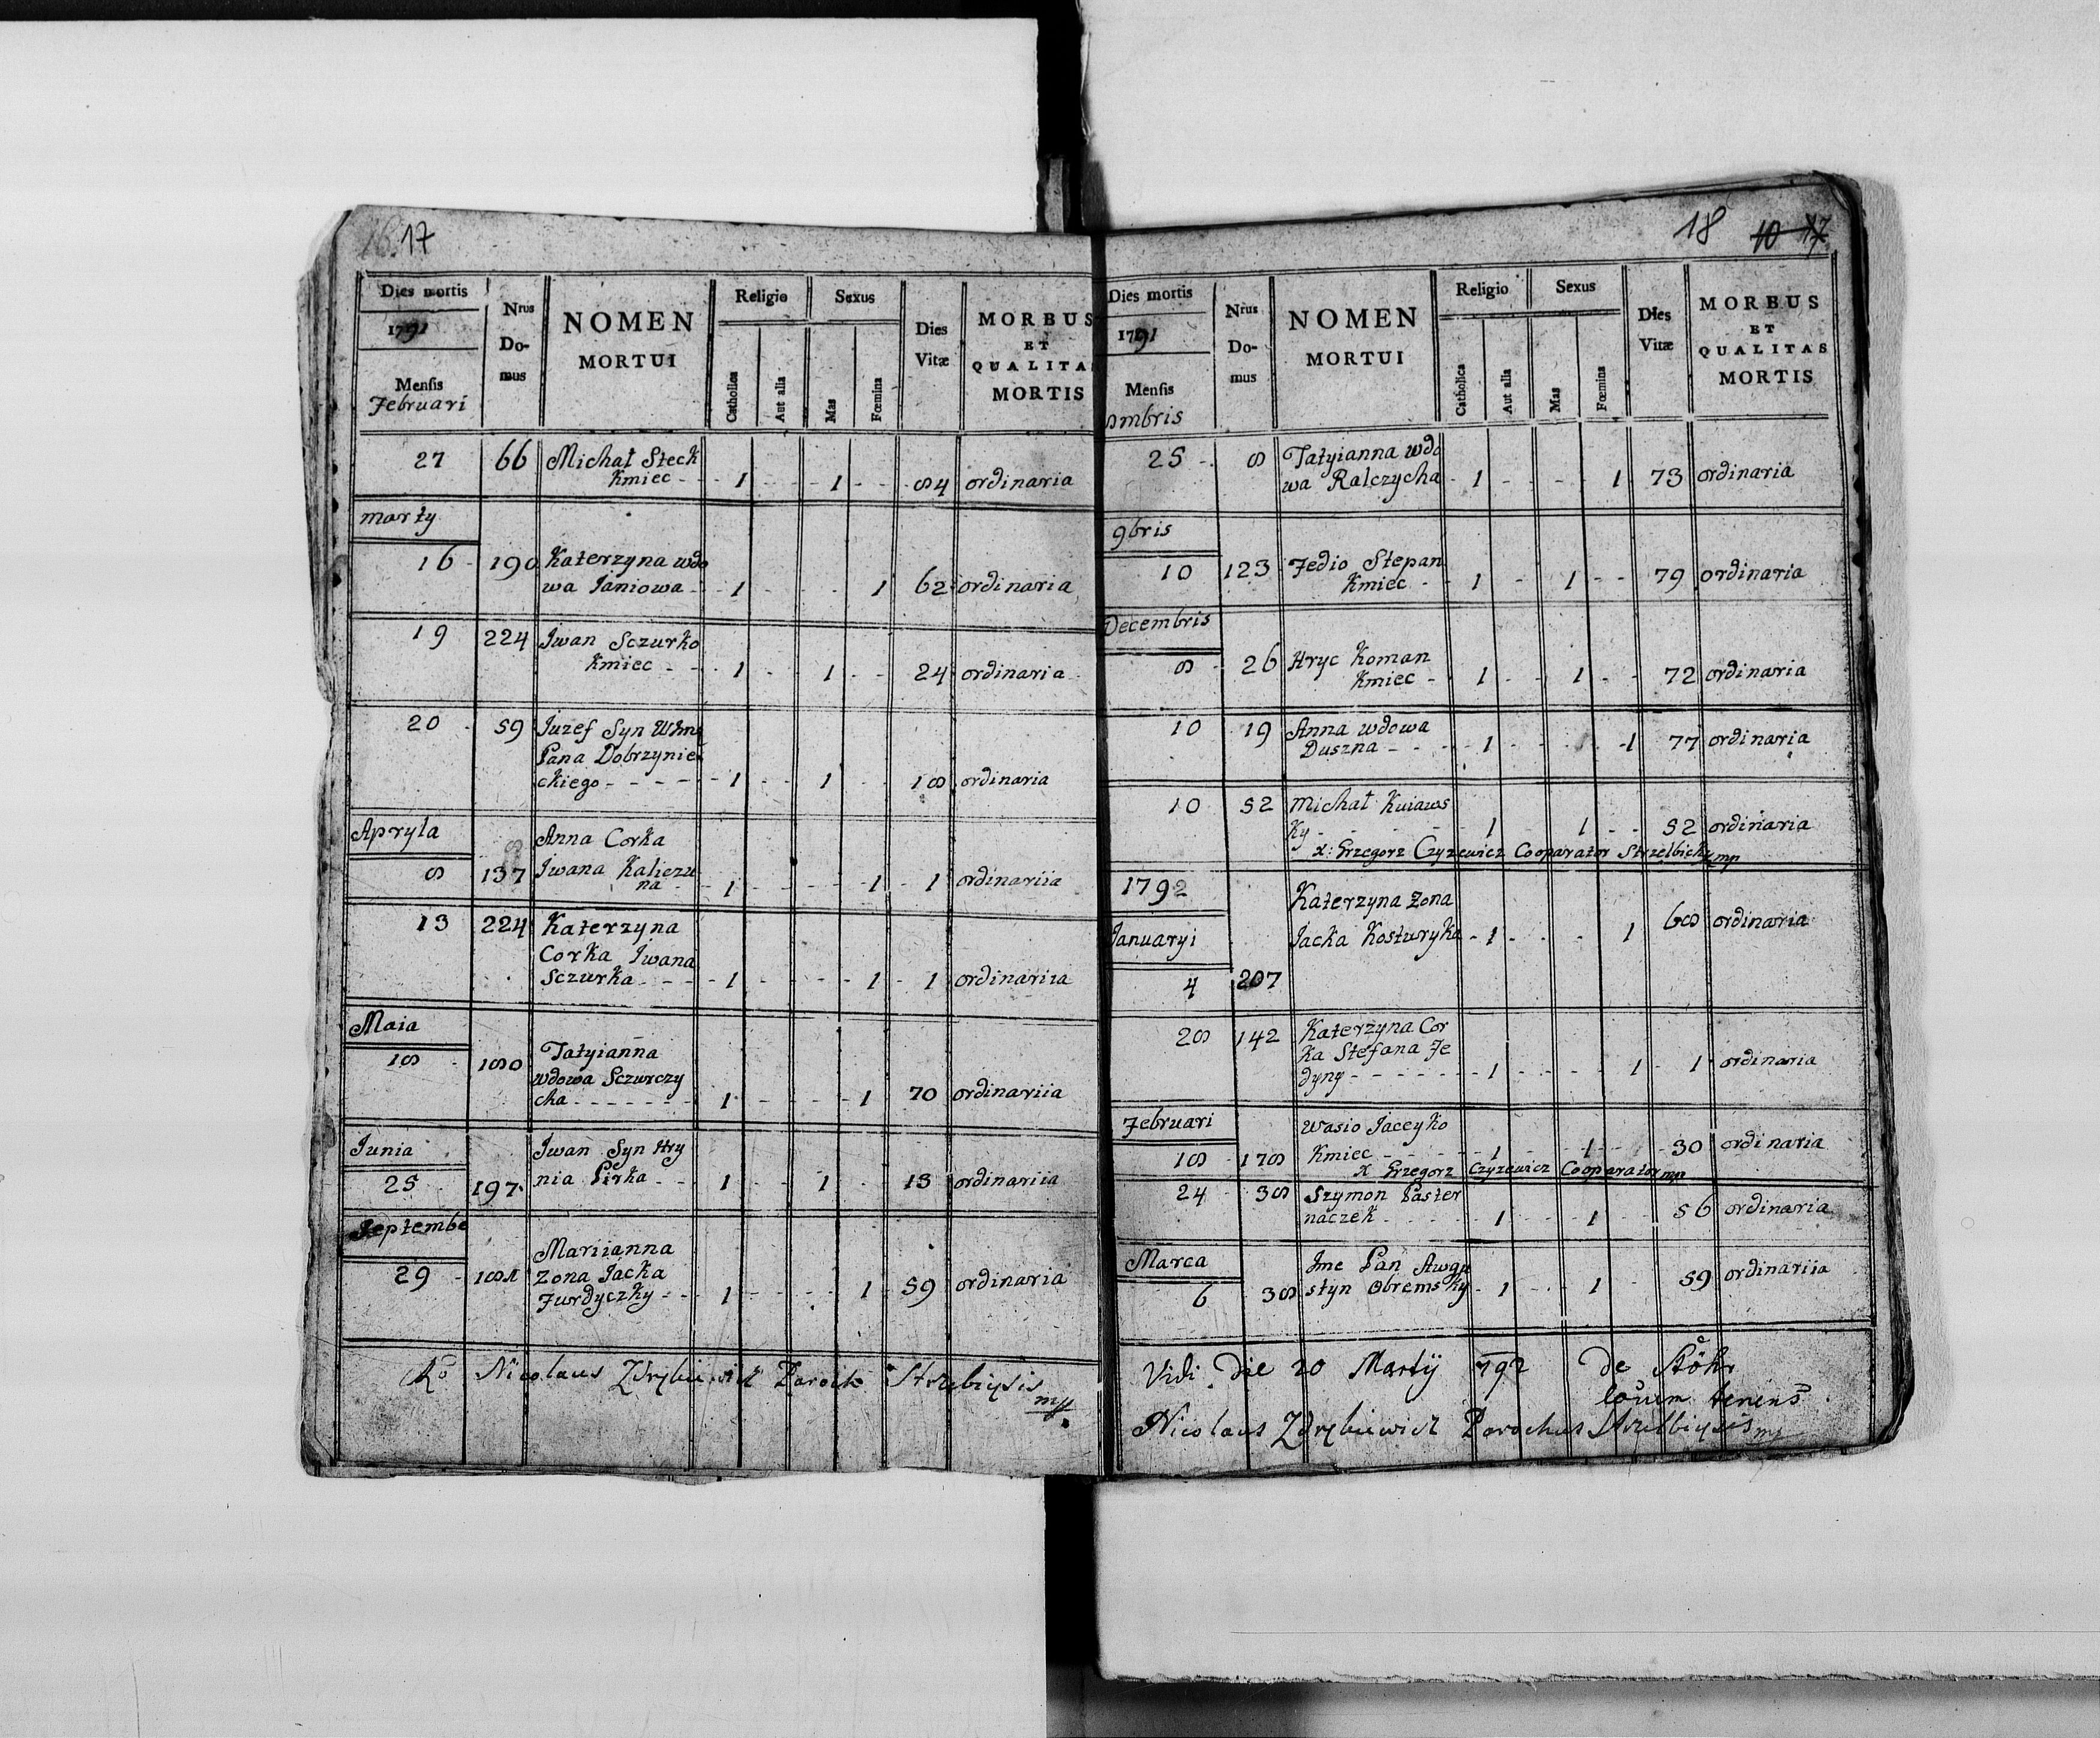 17
Dies mortis
1791
Mensis
Februari
Nrus
Do-
mus
NOMEN
MORTUI
Religio
Catholica
Aut alia
Sexus
Mas
Fœmina
Dies
Vitæ
MORBUS
ET
QUALITAS
MORTIS
27 66 Michał Steck
Kmiec - 1 - - 1 - - 84 ordinaria
marty
16 190 Katerzyna wdo
wa Janiowa - 1 - - - 1 62 ordinaria
19 224 Jwan Sczurko
Kmiec - - 1 - 1 - - 24 ordinaria
20 59 Juzef Syn
Pana Dobrzynie
ckiego - - - - 1 - - 1 - - 18 ordinaria
Apryla
Anna Corka
8 137 Jwana Kaliczu
na - - 1 - - - 1 - 1 ordinariia
13 224 Katerzyna
Corka Jwana
Sczurka - - - 1 - - - 1 - 1 ordinariia
Maia
18 180 Tatyianna
wdowa Sczurczy
cha - - - - - - 1 - - - 1 70 ordinariia
Junia
Jwan Syn Hry
25 197 nia Pirka - - 1 - - 1 - 13 ordinariia
Septembe
Mariianna
29 181 zona Jacka
Furdyczky - - 1 - - - - 1 59 ordinaria
Nicolaus
mp
18 10 17
Dies mortis
1791
Mensis
ombris
Nrus
Do-
mus
NOMEN
MORTUI
Religio
Catholica
Aut alia
Sexus
Mas
Fœmina
Dies
Vitæ
MORBUS
ET
QUALITAS
MORTIS
25 - 8 Tatyianna wdo
wa Ralczycha - 1 - - - 1 73 ordinaria
9bris
10 123 Fedio Stepan
Kmiec - 1 - 1 - - 79 ordinaria
Decembris
8 - 26 Hryc Koman
Kmiec - 1 - - 1 - - 72 ordinaria
10 19 Anna wdowa
Duszna - - - - 1 - - - 1 77 ordinaria
10 52 Michał Kuiaws
Ky - - - - 1 - - 1 - - 52 ordinaria
x: Grzegorz Czyzewicz Cooparator Strzelbicky mp
1792
Katerzyna zona
Januaryi
Jacka Kosturyka - 1 - - - 1 68 ordinaria
4 207
28 142 Katerzyna Cor
ka Stefana Fe
dyny - - - - - - 1 - - - - 1 - 1 ordinaria
Februari
Wasio Jaceyko
18 178 Kmiec - - - - 1 - - 1 - - 30 ordinaria
x Grzegorz Czyzewicz Cooparator mp
24 38 Szymon Paster
naczek - - - - 1 - - 1 - - 56 ordinaria
Marca
Jme Pan Awgu
6 38 styn Obremsky - 1 - - 1 - 59 ordinariia
Vidi die 20 Martij 792 de Stöhr
Nicolaus Parochus mp